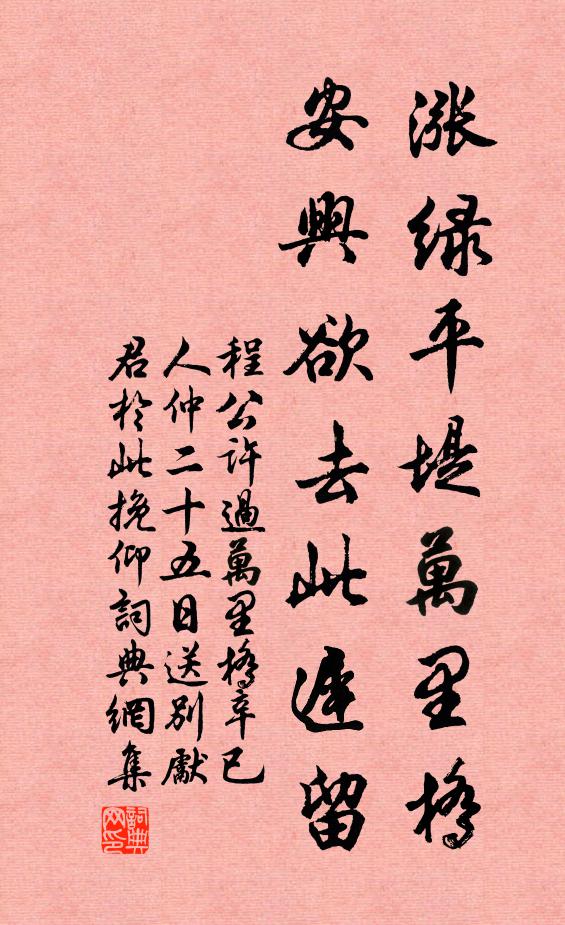 漲綠平堤萬里橋
安輿欲去此遲留
程公許過萬里橋辛巳
人仲二十五日送別獻
君於此挽仰詞典網集
詞典網印